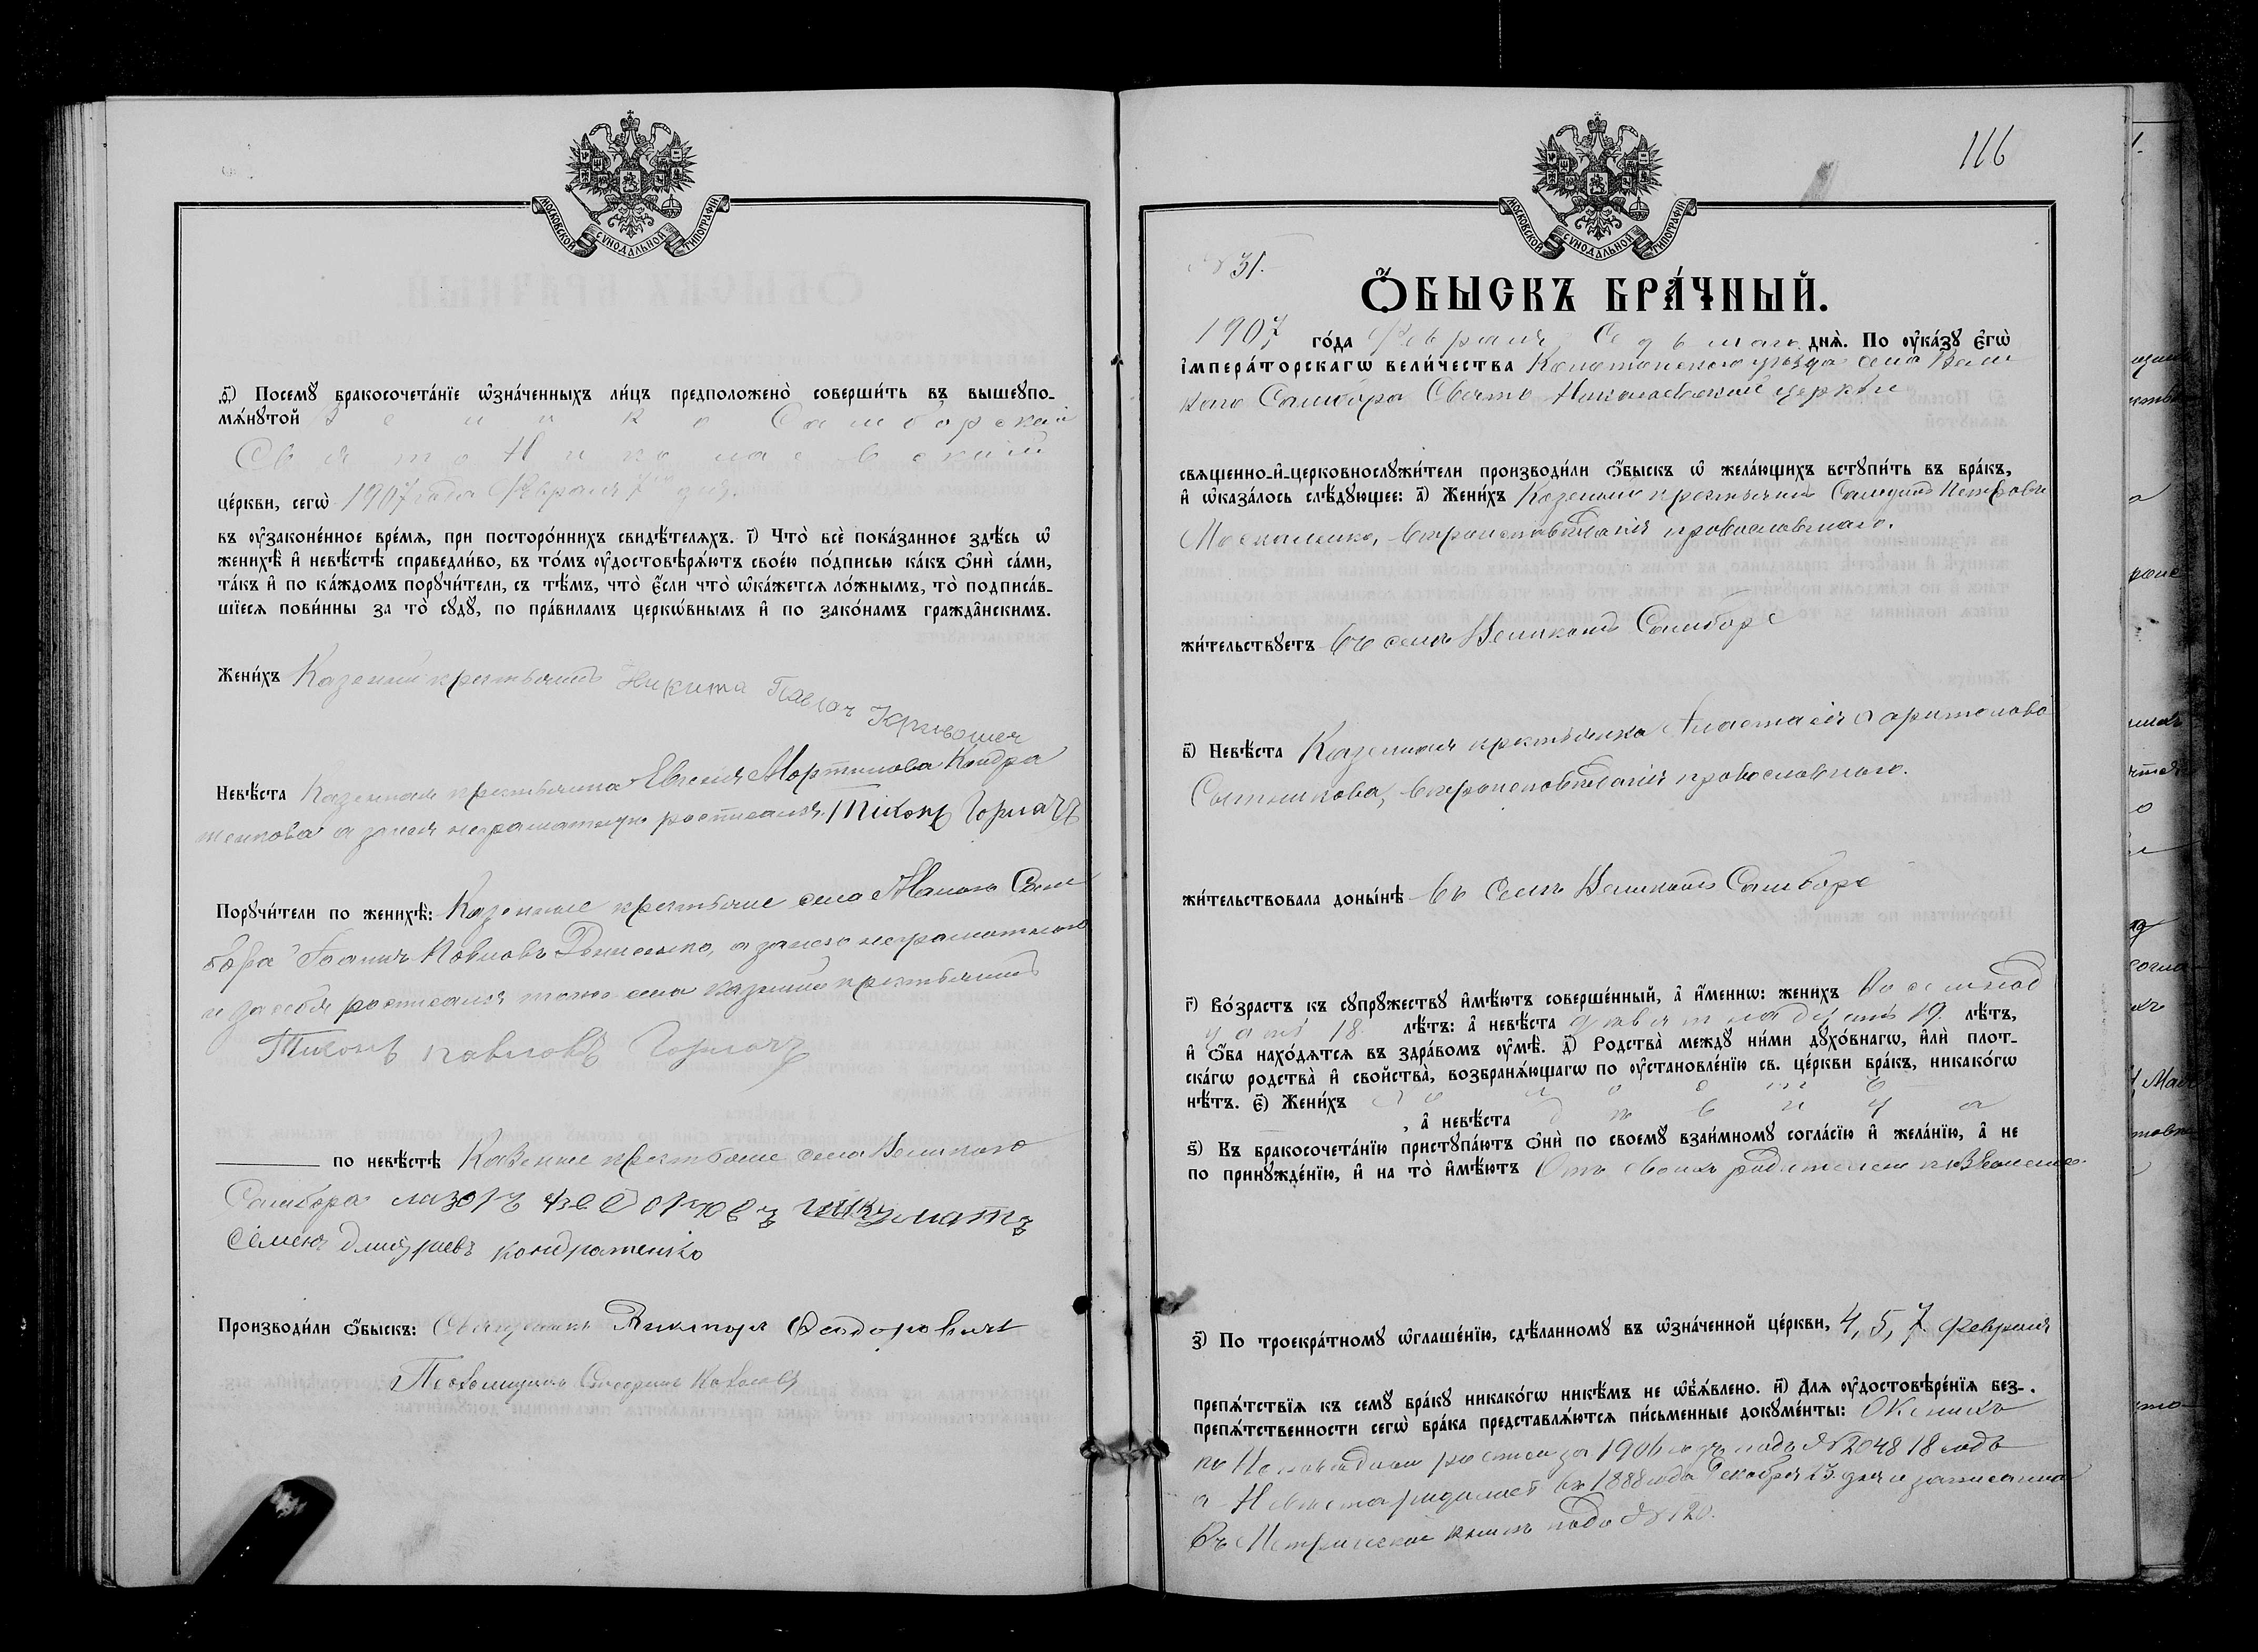 МОСКОВСКОЙ СѴНОДАЛЬНОЙ ТИПОГРАФІИ
д҃) Посемꙋ̀ бракосочета́нїе ѡ҆зна́ченныхъ ли́цъ предположено̀ соверши́ть въ вышеꙋпо-
мѧ́нꙋтой Велико Самборской
Свято Николаевской
це́ркви, сегѡ̀ 1907 года Февраля 7 дня.
въ ᲂу҆зако́ненное вре́мѧ, при посторо́ннихъ свидѣ́телѧхъ. і҃) Что̀ всѐ пока́занное здѣ́сь ѡ҆
женихѣ̀ и҆ невѣ́стѣ справедли́во, въ то́мъ ᲂу҆достовѣрѧ́ютъ свое́ю по́дписью ка́къ ѻ҆нѝ са́ми,
та́къ и҆ по ка́ждомъ порꙋчи́тели, съ тѣ́мъ, что̀ є҆́сли что̀ ѡ҆ка́жетсѧ ло́жнымъ, то̀ подписа́в-
шїесѧ пови́нны за то̀ сꙋдꙋ̀, по пра́виламъ церкѡ́внымъ и҆ по зако́намъ гражда̑нскимъ.
Жени́хъ Казенный крестьянинъ Никита Павлов
Кривошея
Невѣ́ста Казенная крестьянка Евгенія Мартинова Кондра
тенкова а занея неграматную росписался. Тихонъ Горлачъ
Порꙋчи́тели по женихѣ̀: Казенные крестьяне села Малого Сам
бора Іоаннъ Павловъ Денисенко, а занего неграматного
и засебя росписался того села казенный крестьянинъ
Тихонъ павловъ Горлачъ
по невѣ́стѣ Казенные крестьяне села Великого
Самбора
Семенъ дмитриевъ кондратенко
Производи́ли ѻ҆́быскъ: Священникъ Викторъ Феодоровичъ
Псаломщикъ
МОСКОВСКОЙ СѴНОДАЛЬНОЙ ТИПОГРАФІИ
116
№ 31.
Ѻ҆́БЫСКЪ БРА́ЧНЫЙ.
1907 го́да Февраля Седьмаго днѧ̀. По ᲂу҆ка́зꙋ є҆гѡ̀
і҆мпера́торскагѡ вели́чества Конотопского уезда села Вели
каго Самбора Свято Николаевской церкви
свѧще́нно-и҆-церковнослꙋжи́тели производи́ли ѻ҆́быскъ ѡ҆ жела́ющихъ встꙋпи́ть въ бра́къ,
и҆ ѡ҆каза́лось слѣ́дꙋющее: а҃) Жени́хъ Казенный крестьянинъ
Москаленко, вероисповѣданія православнаго.
жи́тельствꙋетъ въ селѣ Великомъ Самборе
в҃) Невѣ́ста Казенная крестьянка Анастасія Харитонова
вероисповѣданія православного.
жи́тельствовала доны́нѣ въ Селѣ Великомъ Самборе
г҃) Во́зрастъ къ сꙋпрꙋ́жествꙋ и҆мѣ́ютъ соверше́нный, а҆ и҆́меннѡ: жени́хъ Восемнад
цать 18 лѣ́тъ: а҆ невѣ́ста девятнадцать 19. лѣ́тъ,
и҆ ѻ҆́ба нахо́дѧтсѧ въ здра́вомъ ᲂу҆мѣ̀. д҃) Родства̀ междꙋ̀ ни́ми дꙋхо́внагѡ, и҆лѝ плот-
ска́гѡ родства̀ и҆ сво́йства̀, возбранѧ́ющагѡ по ᲂу҆становле́нїю св. це́ркви бра́къ, никако́гѡ
нѣ́тъ. є҃) Жени́хъ холостъ
, а҆ невѣ́ста девица
ѕ҃) Въ бракосочета́нїю пристꙋпа́ютъ ѻ҆нѝ по своемꙋ̀ взаи́мномꙋ согла́сїю и҆ жела́нїю, а҆ не
по принꙋжде́нїю, и҆ на то̀ и҆мѣ́ютъ Отъ своихъ родителей позволение
з҃) По троекра́тномꙋ ѡ҆глаше́нїю, сдѣ́ланномꙋ въ ѡ҆зна́ченной це́ркви, 4, 5, 7 февраля
препѧ́тствїѧ къ семꙋ̀ бра́кꙋ никако́гѡ никѣ́мъ не ѡ҆б̾ѧ́влено. и҃) Длѧ ᲂу҆достовѣре́нїѧ без-
препѧ́тственности сегѡ̀ бра́ка представлѧ́ютсѧ пи́сьменные докꙋме́нты: Женихъ
по Исповедной росписи за 1906 годъ подъ № 2048 18 летъ
а Невеста родилась въ 1888 года Декабря 23. дня и записанна
Въ Метрической книге подъ № 120.